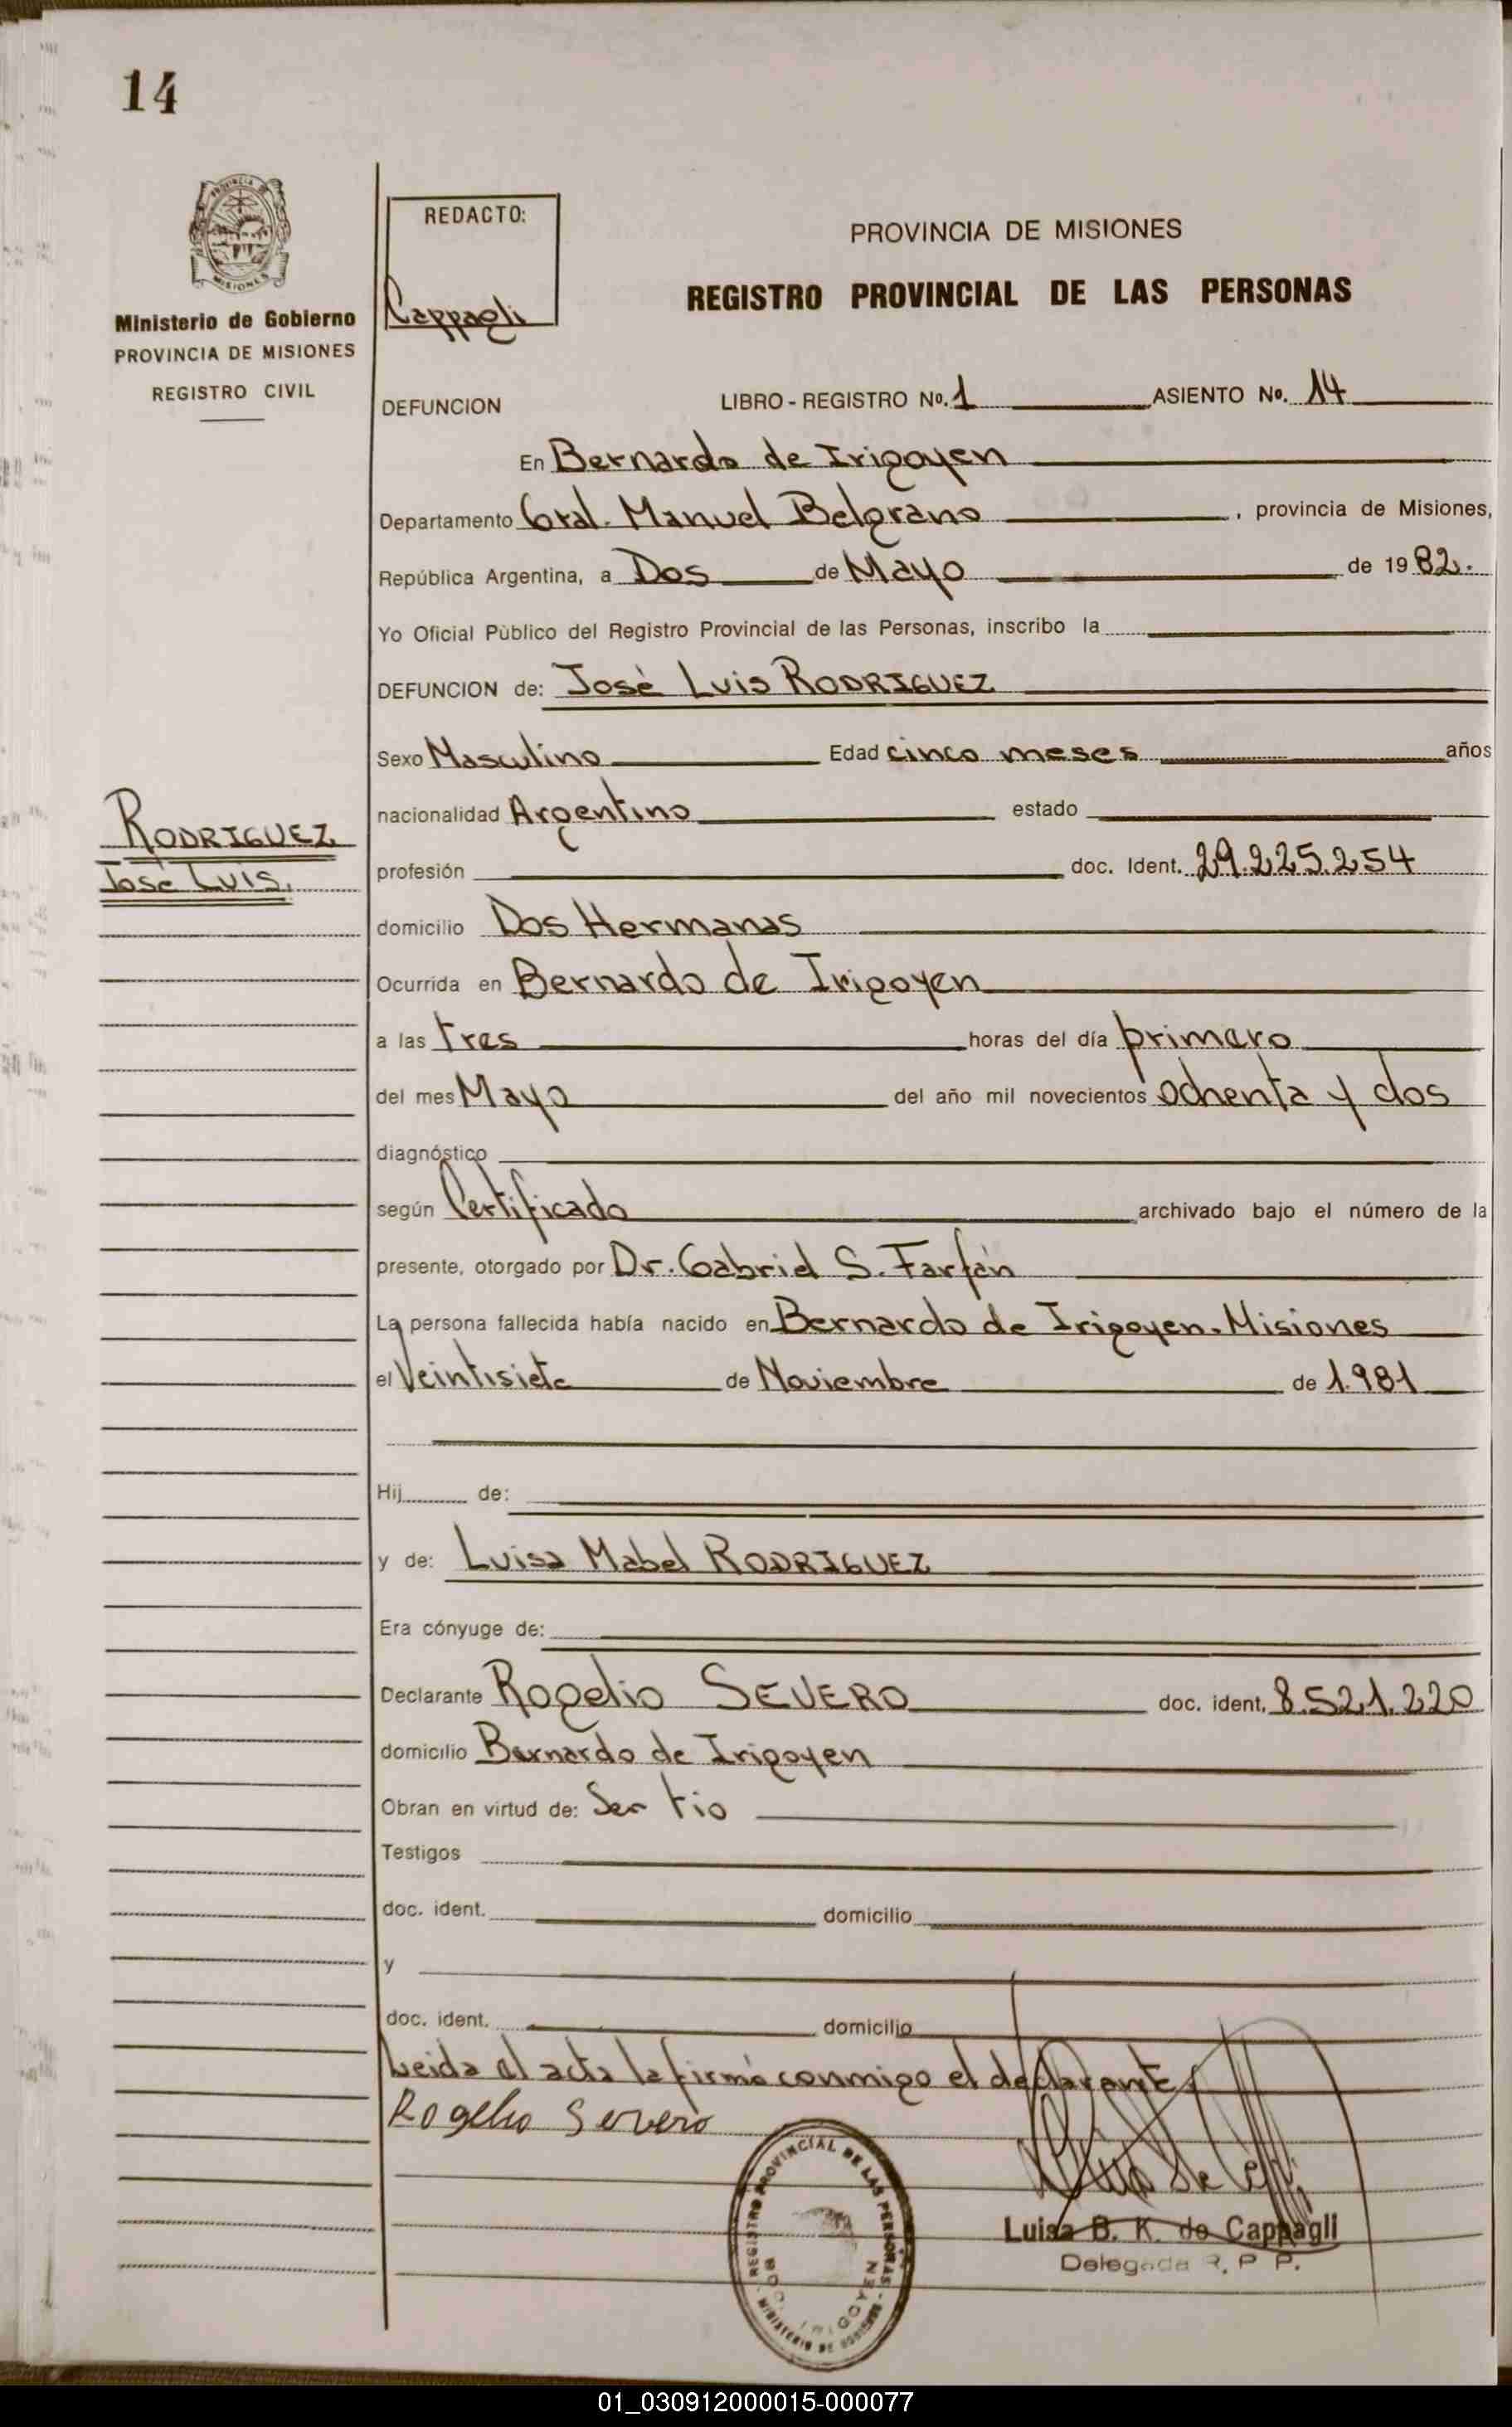 14
PROVINCIA DE
MISIONES
Ministerio de Gobierno
PROVINCIA DE MISIONES
REGISTRO CIVIL
RODRIGUEZ
José Luis.
REDACTO:
Cappagli
PROVINCIA DE MISIONES
REGISTRO PROVINCIAL DE LAS PERSONAS
DEFUNCION LIBRO - REGISTRO No. 1 ASIENTO No. 14
En Bernardo de Irigoyen
Departamento Gral. Manuel Belgrano, provincia de Misiones,
República Argentina, a Dos de Mayo de 1982.
Yo Oficial Público del Registro Provincial de las Personas, inscribo la
DEFUNCION de: José Luis RODRIGUEZ
Sexo Masculino Edad cinco meses años
nacionalidad Argentino estado
profesión doc. Ident. 29.225.254
domicilio Dos Hermanas
Ocurrida en Bernardo de Irigoyen
a las tres horas del día primero
del mes Mayo del año mil novecientos ochenta y dos
diagnóstico
según Certificado archivado bajo el número de la
presente, otorgado por Dr. Gabriel S. Farfán
La persona fallecida había nacido en Bernardo de Irigoyen-Misiones
el Veintisiete de Noviembre de 1.981
Hij de:
y de: Luisa Mabel RODRIGUEZ
Era cónyuge de:
Declarante Rogelio SEVERO doc. ident. 8.521.220
domicilio Bernardo de Irigoyen
Obran en virtud de: Ser tio
Testigos
doc. ident. domicilio
y
doc. ident. domicilio
Leida el acta la firma conmigo el declarante
Rogelio Severo
REGISTRO PROVINCIAL DE LAS PERSONAS
MINISTERIO DE GOBIERNO
BDO. IRIGOYEN
Luisa B. K. de Cappagli
Delegada R. P. P.
01_030912000015-000077